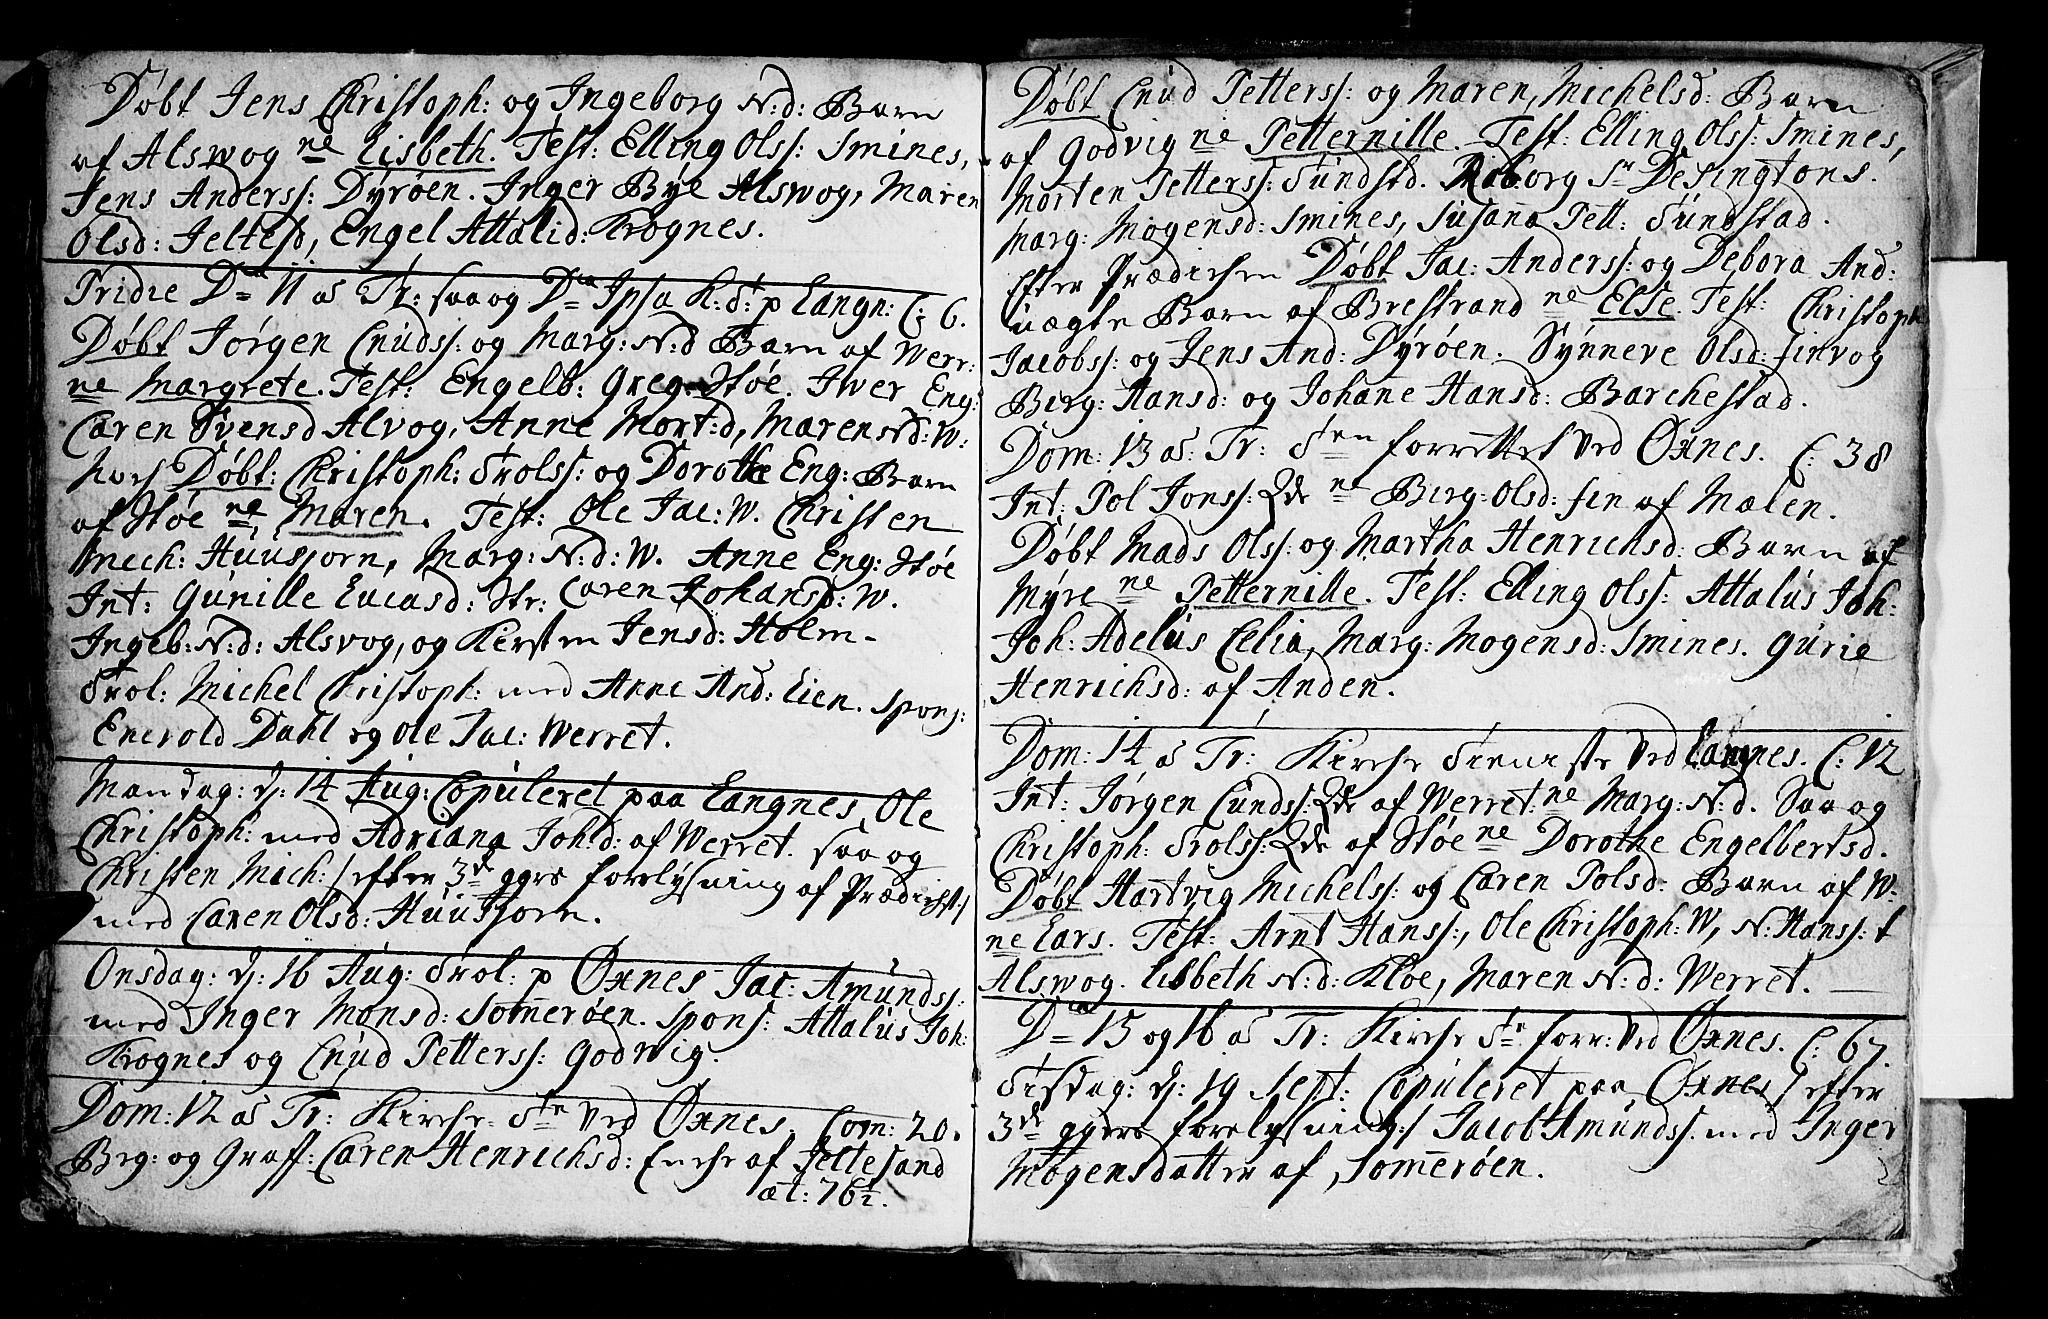 Døbt Jens Christoph: og Ingeborg N:d: Barn
af Alswog ne Lisbeth. Test: Elling Olss: Smines,
Jens Anderss: Dyrøen. Inger Bye Alswog, Maren
Olsd: Jeltesd, Engel Attalid: Krognes.
Pridie D: 11 a Tr: saa og Dca Ipsa K: St: p Langn: C: 6.
Døbt Jørgen Cnudss: og Marg: N:d Barn af Werr:
ne Margrete. Test: Engelb: Greg: Støe. Iwer Eng:
Caren Svensd Alvog, Anne Mort:d, Maren N:d: W:
Noch Døbt: Christoph: Trolss: og Dorothe Eng: Barn
af Støe ne Maren. Test: Ole Jac: W. Christen
Mich: Huusjorn, Marg: N:d: W. Anne Eng: Støe
Int: Gunille Lucasd: Str: Caren Johansd: W.
Ingeb: N:d: Alsvog, og Kirsten Jensd: Holm.
Trol: Michel Christoph: med Anne And: Lien. Spons:
Enevold Dahl og Ole Jac: Werret.
Mandag: d: 14 Aug: Copuleret paa Langnes, Ole
Christoph: med Adriana Joh:d: af Werret. saa og
Christen Mich: / efter 3de ggrs forelysning af Prædichst: /
med Caren Olsd: Huusjorn.
Onsdag: d: 16 Aug: Trol: p Øxnes Jac: Amundss:
med Inger Monsd: Som̅erøen. Spons: Attalus Joh:
Krognes og Cnud Petterss: Godwig.
Dom: 12 a Tr: Kirche Ste ved Øxnes. Com: 20.
Beg: og Graff: Caren Henrichsd: Enche af Jeltesand
æt: 76½.
Døbt Cnud Petterss: og Maren, Michelsd: Barn
af Godvig ne Petternille. Test: Elling Olss: Smines,
Morten Petterss: Sundstd. Sr Desingtons.
Marg: Mogensd: Smines, Susan̅a Pett: Sundstad.
Efter Prædichen Døbt Jac: Anderss: og Debora And:
uægte Barn af Brestrand ne Else. Test: Christoph
Jacobss: og Jens And: Dyrøen. Synneve Olsd: Finvog
Berg: Hansd: og Johane Hansd: Barchestad.
Dom: 13 a Tr: Sten forrettet ved Øxnes. C: 38
Int: Pol Jonss: Qde ne Berg: Olsd: fin af Mælen.
Døbt Mads Olss: og Martha Henrichsd: Barn af
Myre ne Petternille. Test: Elling Olss: Attalus Joh:
Joh: Adelus Celia, Marg: Mogensd: Smines. Gurie
Henrichsd: af Anden.
Dom: 14 a Tr: Kirche Tieniste ved Langnes. C: 12
Int: Jørgen Cundss: Qde af Werret: ne Marg: N:d. Saa og
Christoph: Trolss: Qde af Støe ne Dorothe Engelbertsd.
Døbt Hartvig Michelss: og Caren Polsd: Barn af W:
ne Lars. Test: Arnt Hanss:, Ole Christoph: W, N: Hanss: t
Alswog. Lisbeth N:d: Kloe, Maren N:d: Werret.
Dca 15 og 16 a Tr: Kirche Ste forr: ved Øxnes. C: 67
Tisdag: d: 19 Sept: Copuleret paa Øxnes / efter
3de ggers forelysning: / Jacob Amundss: med Inger
Mogensdatter af Som̅erøen.